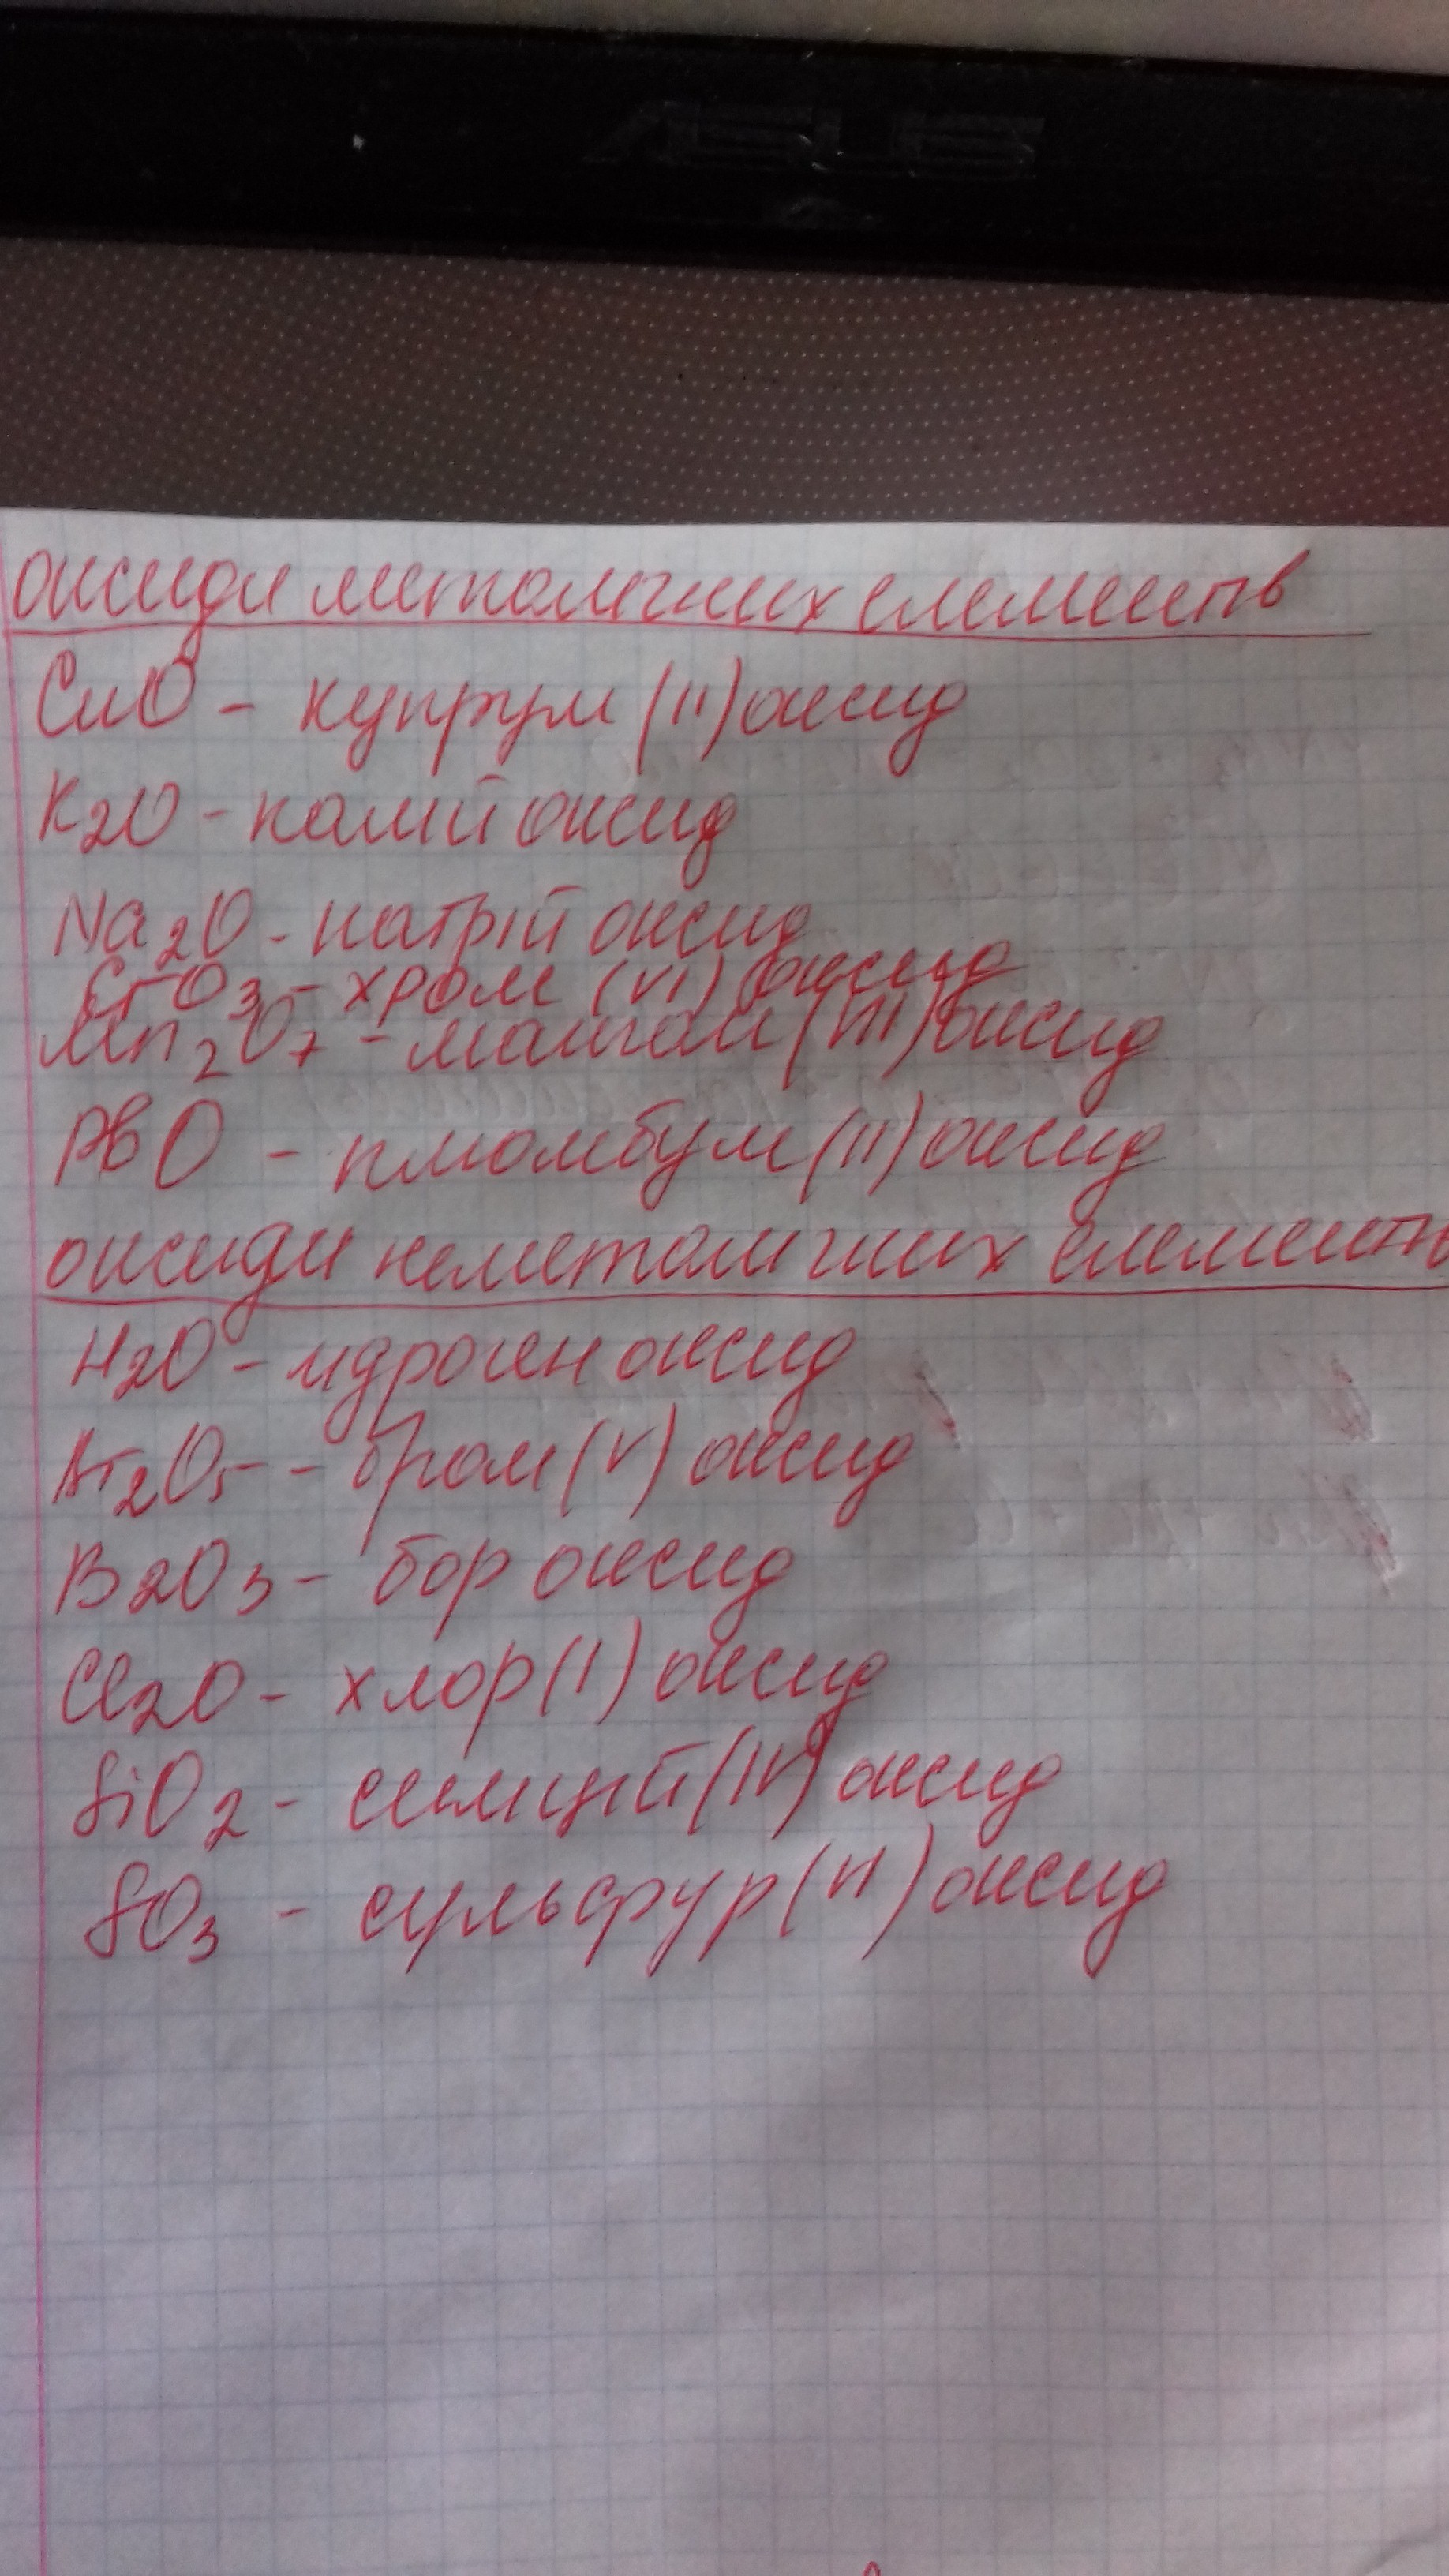 ASUS
оксиди металічних елементів
CuO - купрум (II) оксид
K2O - калій оксид
Na2O - натрій оксид
CrO3 - хром (VI) оксид
Mn2O7 - манган (VII) оксид
PbO - плюмбум (II) оксид
оксиди неметалічних елементів
H2O - гідроген оксид
Br2O5 - бром (V) оксид
B2O3 - бор оксид
Cl2O - хлор (I) оксид
SiO2 - силіцій (IV) оксид
SO3 - сульфур (VI) оксид